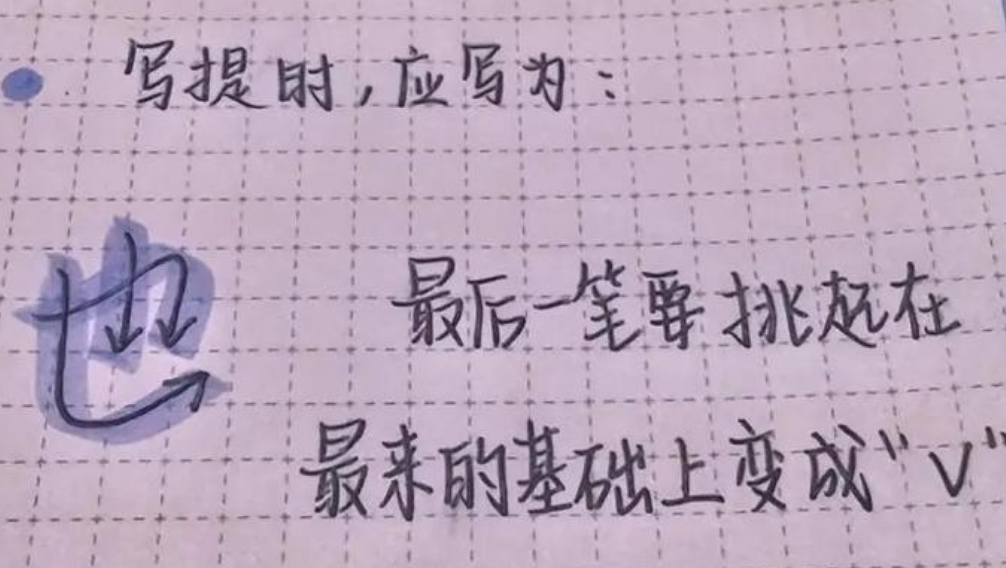 写提时，应写为：
也 最后一笔要挑起在
最来的基础上变成“V”